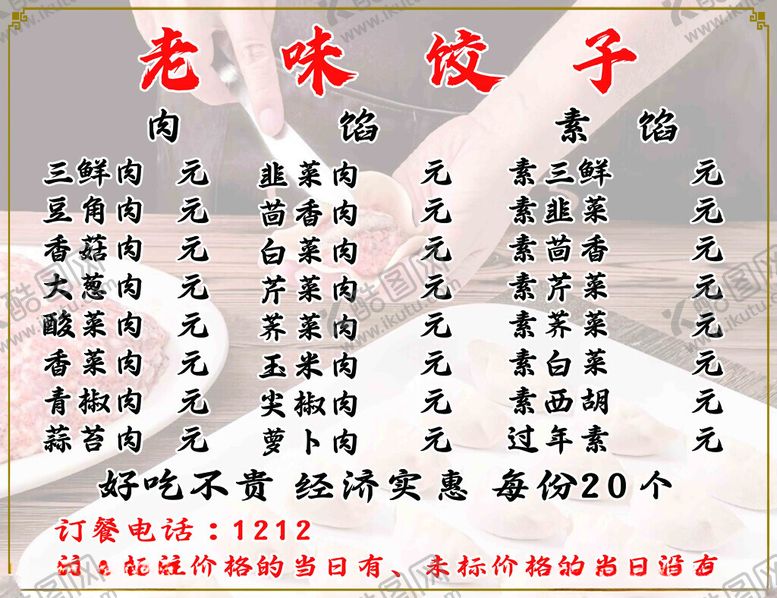 老味饺子
肉馅 素馅
三鲜肉 元 韭菜肉 元 素三鲜 元
豆角肉 元 茴香肉 元 素韭菜 元
香菇肉 元 白菜肉 元 素茴香 元
大葱肉 元 芹菜肉 元 素芹菜 元
酸菜肉 元 荠菜肉 元 素荠菜 元
香菜肉 元 玉米肉 元 素白菜 元
青椒肉 元 尖椒肉 元 素西胡 元
蒜苔肉 元 萝卜肉 元 过年素 元
好吃不贵 经济实惠 每份20个
订餐电话：1212
注：标注价格的当日有、未标价格的当日没有
酷图网
www.ikutu.com